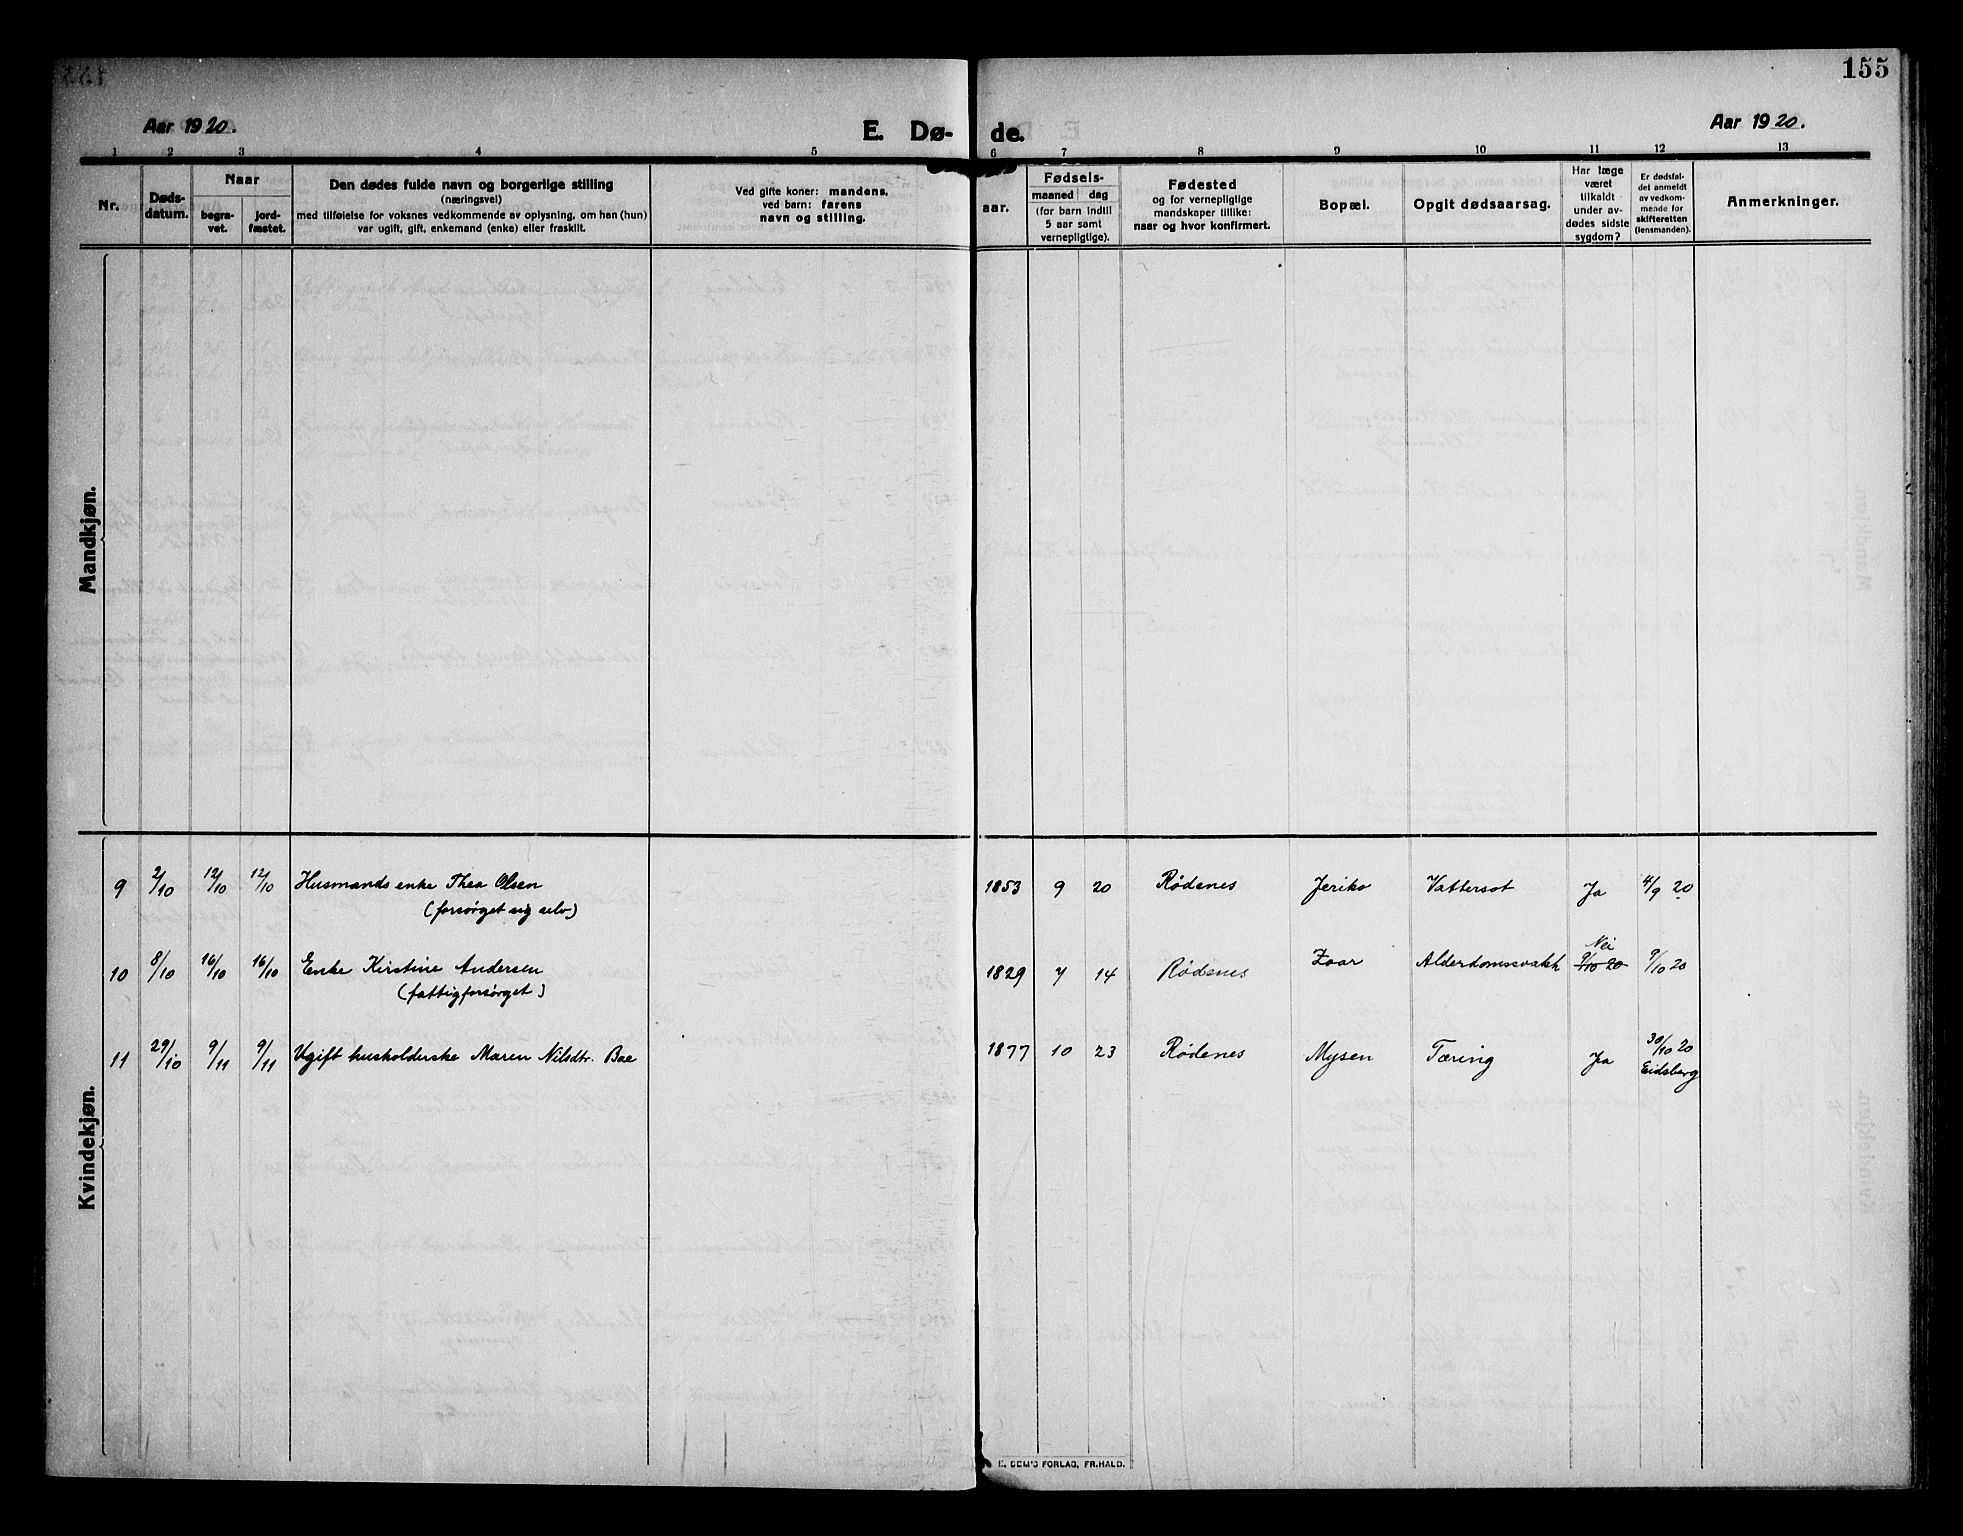 155
Aar 1920.
E. Dø-
de.
Aar 1920.
1 2 3 4 5 6 7 8 9 10 11 12 13
Nr.
Døds-
datum.
Naar
begra-
vet.
jord-
fæstet.
Den dødes fulde navn og borgerlige stilling
(næringsvei)
med tilføielse for voksnes vedkommende av oplysning, om han (hun)
var ugift, gift, enkemand (enke) eller fraskilt.
Ved gifte koner: mandens,
ved barn: farens
navn og stilling.
aar.
Fødsels-
maaned dag
(for barn indtil
5 aar samt
vernepligtige).
Fødested
og for vernepligtige
mandskaper tillike:
naar og hvor konfirmert.
Bopæl.
Opgit dødsaarsag.
Har læge
været
tilkaldt
under av-
dødes sidste
sygdom?
Er dødsfal-
det anmeldt
av vedkom-
mende for
skifteretten
(lensmanden).
Anmerkninger.
Mandkjøn.
Kvindekjøn.
9 2/10 12/10 12/10 Husmands enke Thea Olsen 1853 9 20 Rødenes Jeriko Vattersot Ja 4/9 20
(forsørget sig selv)
10 8/10 16/10 16/10 Enke Kirstine Andersen 1829 7 14 Rødenes Zoar Alderdomssvakh Nei 9/10 20 9/10 20
(fattigforsørget)
11 29/10 9/11 9/11 Ugift husholderske Maren Nilsdtr. Bae 1877 10 23 Rødenes Mysen Tæring Ja 30/10 20
Eidsberg
FORLAG, FR.HALD.